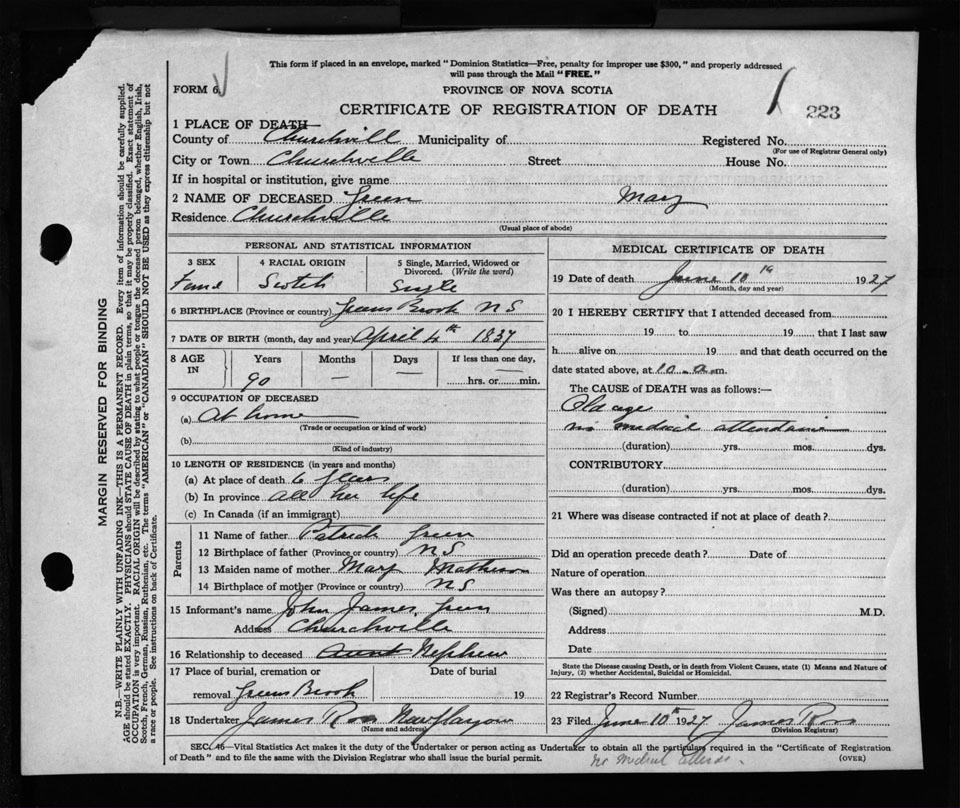 This form if placed in an envelope, marked "Dominion Statistics—Free, penalty for improper use $300," and properly addressed
will pass through the Mail "FREE."
FORM 6
PROVINCE OF NOVA SCOTIA
CERTIFICATE OF REGISTRATION OF DEATH
223
1 PLACE OF DEATH—
County of Churchvill Municipality of Registered No.
(For use of Registrar General only)
City or Town Churchville Street House No.
If in hospital or institution, give name
2 NAME OF DECEASED Green Mary
Residence Churchville
(Usual place of abode)
PERSONAL AND STATISTICAL INFORMATION
3 SEX 4 RACIAL ORIGIN 5 Single, Married, Widowed or Divorced. (Write the word)
Scotch Single
6 BIRTHPLACE (Province or country) Greens Brook N S
7 DATE OF BIRTH (month, day and year) April 4th 1837
8 AGE IN Years Months Days If less than one day,
90 — — — hrs. or min.
9 OCCUPATION OF DECEASED
(a) At home
(Trade or occupation or kind of work)
(b)
(Kind of industry)
10 LENGTH OF RESIDENCE (in years and months)
(a) At place of death 6 years
(b) In province all her life
(c) In Canada (if an immigrant)
Parents
11 Name of father Patrick Green
12 Birthplace of father (Province or country) N S
13 Maiden name of mother Mary Matheson
14 Birthplace of mother (Province or country) N S
15 Informant's name John James Green
Address Churchville
16 Relationship to deceased Aunt Nephew
17 Place of burial, cremation or Date of burial
removal Greens Brook 19
18 Undertaker James Ross New Glasgow
(Name and address)
MEDICAL CERTIFICATE OF DEATH
19 Date of death June 10th 1927
(Month, day and year)
20 I HEREBY CERTIFY that I attended deceased from
19 to 19, that I last saw
h alive on 19 and that death occurred on the
date stated above, at 10 a m.
The CAUSE of DEATH was as follows:—
Old age
no medical attendance
(duration) yrs. mos. dys.
CONTRIBUTORY
(duration) yrs. mos. dys.
21 Where was disease contracted if not at place of death?
Did an operation precede death? Date of
Nature of operation
Was there an autopsy?
(Signed) M.D.
Address
Date
State the Disease causing Death, or in death from Violent Causes, state (1) Means and Nature of
Injury, (2) whether Accidental, Suicidal or Homicidal.
22 Registrar's Record Number
23 Filed June 10th 1927 James Ross
(Division Registrar)
SEC. 46—Vital Statistics Act makes it the duty of the Undertaker or person acting as Undertaker to obtain all the particulars required in the "Certificate of Registration
of Death" and to file the same with the Division Registrar who shall issue the burial permit.
(OVER)
no medical
MARGIN RESERVED FOR BINDING
N.B.—WRITE PLAINLY, WITH UNFADING INK—THIS IS A PERMANENT RECORD. Every item of information should be carefully supplied.
AGE should be stated EXACTLY. PHYSICIANS should STATE CAUSE OF DEATH in plain terms, so that it may be properly classified. Exact statement of
OCCUPATION is very important. RACIAL ORIGIN will be described by stating to what people or tongue the deceased person belonged, whether English, Irish,
Scotch, French, German, Russian, Ruthenian, etc. The terms "AMERICAN" or "CANADIAN" SHOULD NOT BE USED as they express citizenship but not
a race or people. See instructions on back of Certificate.